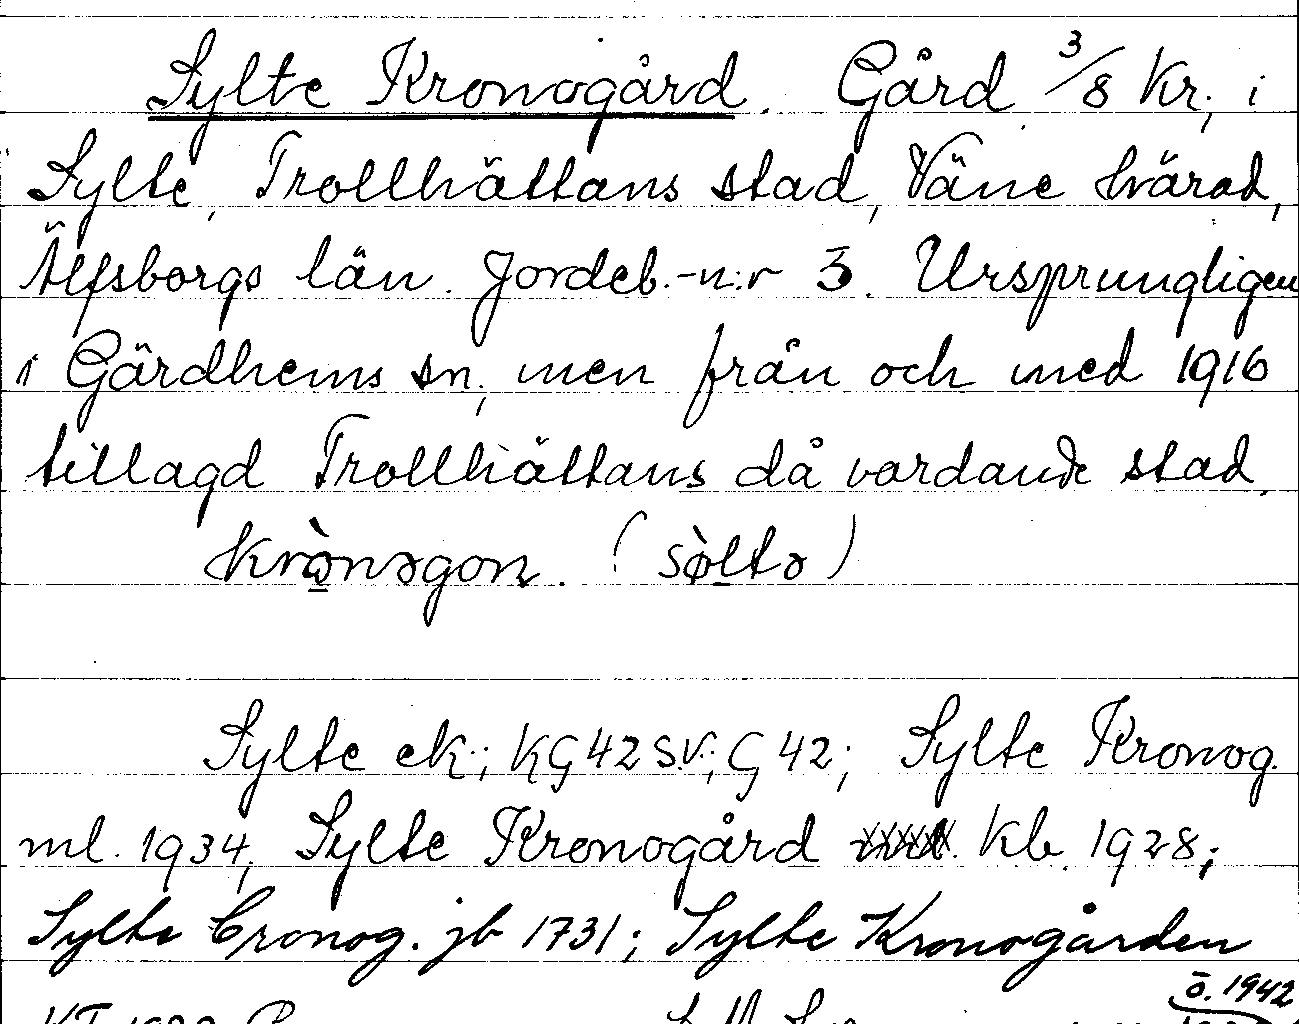 Sylte Kronogård. Gård 3/8 Kr. i
Sylte, Trollhättans stad, Väne härad,
Älfsborgs län. Jordeb.-n:r 3. Ursprungligen
i Gärdhems sn, men från och med 1916
tillagd Trollhättans då vardande stad.
krò̱nəgoɳ. (sø̀ltə)
Sylte ek.; KG 42 s.v.; G 42; Sylte Kronog.
ml. 1934, Sylte Kronogård Kb. 1928;
Sylte Cronog. jb 1731; Sylte Kronogården
ö. 1942